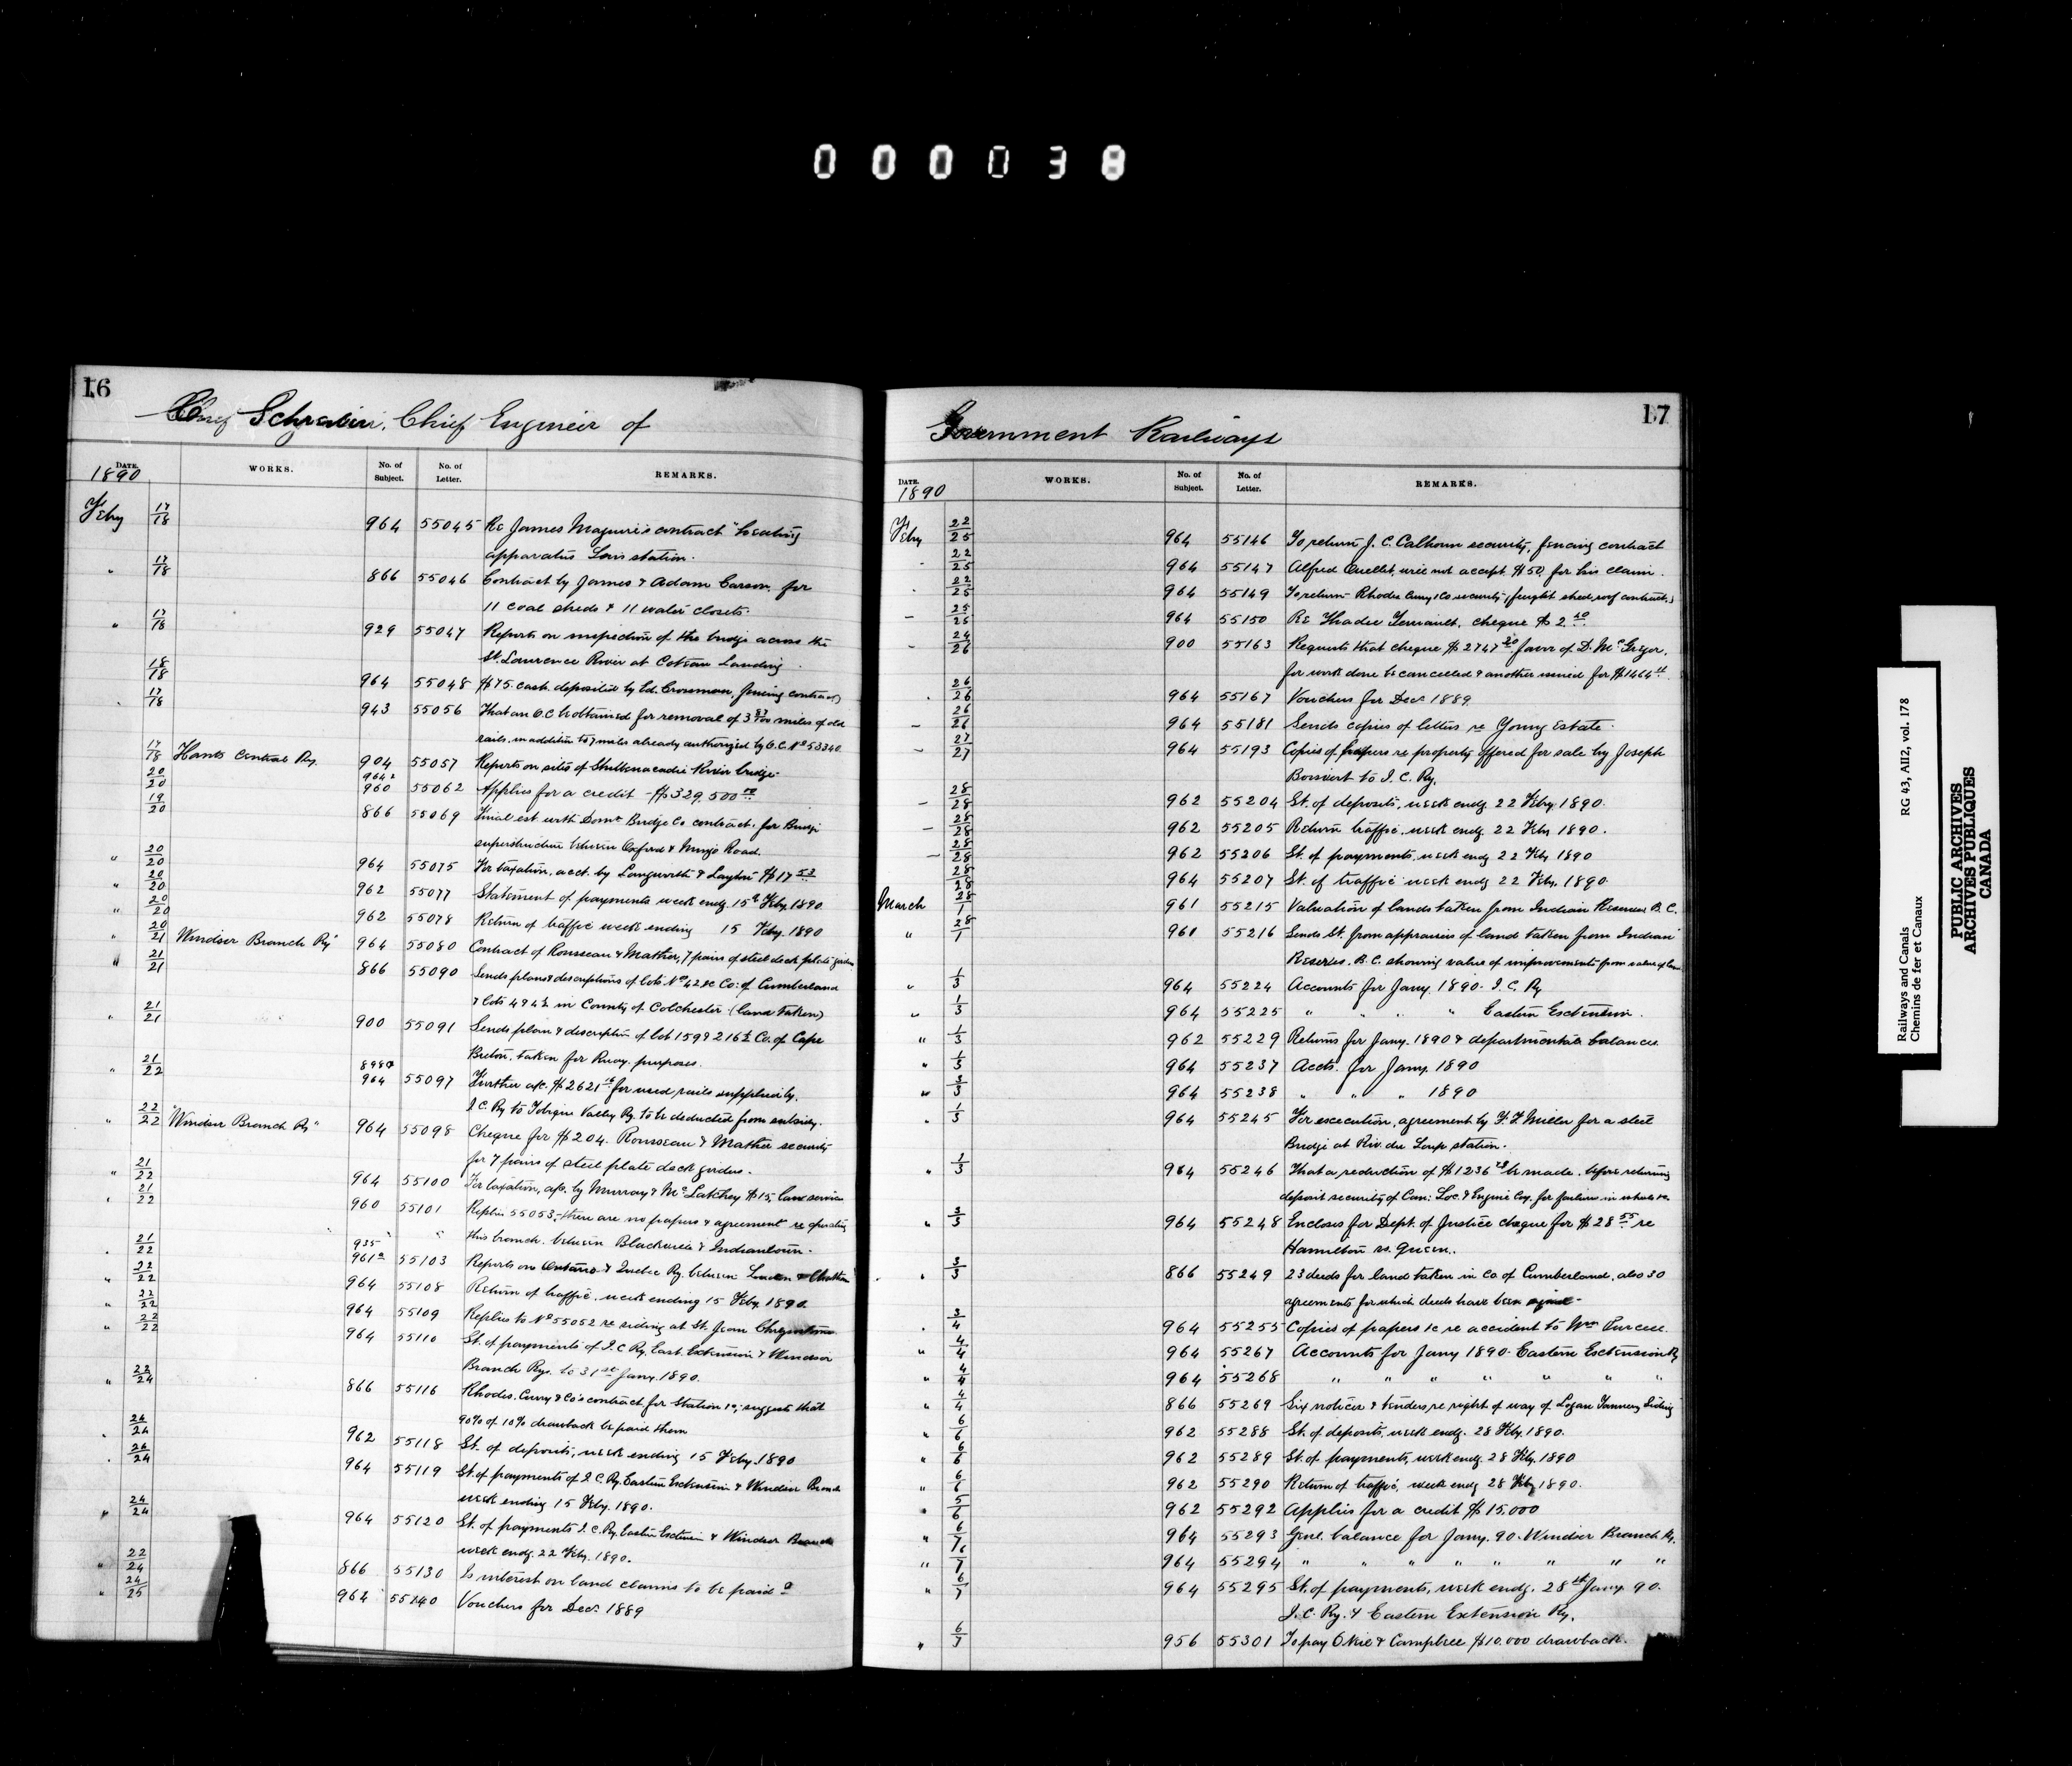 000038
16
Schreiber, Chief Engineer of
DATE. WORKS. No. of Subject. No. of Letter. REMARKS.
1890
Feby 17/18 964 55045 Re James Maguire's contract "heating
apparatus Levis station.
" 17/18 866 55046 Contract by James & Adam Carson. for
11 coal sheds & 11 water closets.
" 17/18 929 55047 Reports on inspection of the bridge across the
St. Lawrence River at Coteau Landing.
18/18 964 55048 $75. cash deposited by Ed. Crossman, fencing contract
17/18 943 55056 That an O.C. be obtained for removal of 3 87/100 miles of old
rails, in addition to 7 miles already authorized by O.C. No 53340
17/18 Hants Central Ry. 904 55057 Reports on sites of Shubenacadie River bridge.
20/20 964 960 55062 Applies for a credit - $329,500
19/20 866 55069 Final est. with Domn Bridge Co contract. for Bridge
superstructure between Oxford & Mingo Road.
" 20/20 964 55075 For taxation, acct. by Longworth & Layton $17 53
" 20/20 962 55077 Statement of payments week endg. 15th Feby. 1890
" 20/20 962 55078 Return of traffic week ending 15 Feby. 1890
" 20/21 Windsor Branch Ry" 964 55080 Contract of Rousseau & Mather, 7 pairs of steel deck plate girders
" 21/21 866 55090 Sends plans & descriptions of lots No 42 &c Co: of Cumberland
& lots 494½ in County of Colchester (land taken)
" 21/21 900 55091 Sends plan & description of lot 159 & 216½ Co. of Cape
Breton, taken for Rway. purposes.
" 21/22 898 964 55097 Further a/c. $2621 for used rails supplied by.
I.C. Ry to Tobique Valley Ry. to be deducted from subsidy.
" 22/22 "Windsor Branch Ry" 964 55098 Cheque for $204. Rousseau & Mather security
for 7 pairs of steel plate deck girders.
" 21/22 964 55100 For taxation, a/c. by Murray & McLatchey $15, law service
" 21/22 960 55101 Replies 55053, there are no papers & agreement re operating
this branch. between Blackville & Indiantown.
" 21/22 935 961a 55103 Reports on Ontario & Quebec Ry. between London & Chatham
" 22/22 964 55108 Return of traffic. week ending 15 Feby. 1890.
" 22/22 964 55109 Replies to No 55052 re siding at St. Jean Chrysostome
" 22/22 964 55110 St. of payments of I.C. Ry. East. Extension & Windsor
Branch Rys. to 31st Jany. 1890.
" 22/24 866 55116 Rhodes. Curry & Co's contract for Station &c; suggests that
90% of 10% drawback be paid them
" 24/24 962 55118 St. of deposits, week ending 15 Feby. 1890
" 24/24 964 55119 St. of payments of I.C. Ry. Eastern Extension & Windsor Branch
week ending 15 Feby. 1890.
" 24/24 964 55120 St. of payments I.C. Ry. Eastern Extension & Windsor Branch
week endg. 22 Feby. 1890.
" 22/24 866 55130 Is interest on land claims to be paid?
" 24/25 964 55140 Vouchers for Decr 1889
17
Government Railways
DATE. WORKS. No. of Subject. No. of Letter. REMARKS.
1890
Feby 22/25 964 55146 To return J. C. Calhoun security, fencing contract
" 22/25 964 55147 Alfred Ouellet, will not accept $50. for his claim.
" 22/25 964 55149 To return Rhodes Curry & Co security (freight shed roof contract)
" 25/25 964 55150 Re Thadee Terriault, cheque $2.50
" 24/26 900 55163 Requests that cheque $2747 20 favor of D. McGregor.
for work done be cancelled & another issued for $1464
" 26/26 964 55167 Vouchers for Decr 1889.
" 26/26 964 55181 Sends copies of letters re Young Estate.
" 27/27 964 55193 Copies of papers re property offered for sale by Joseph
Boisvert to I. C. Ry.
" 28/28 962 55204 St. of deposits, week endg 22 Feby. 1890.
" 28/28 962 55205 Return traffic. week endg. 22 Feby 1890.
" 28/28 962 55206 St. of payments, week endg 22 Feby. 1890
28/28 964 55207 St. of traffic week endg 22 Feby, 1890.
March 28/1 961 55215 Valuation of lands taken from Indian Reserves B.C.
" 28/1 961 55216 Sends St. from appraisers of land taken from Indian
Reserves. B.C. showing value of improvements from value of land
" 1/3 964 55224 Accounts for Jany. 1890. I.C. Ry
" 1/3 964 55225 " " " " Eastern Extension.
" 1/3 962 55229 Returns for Jany. 1890 & departmental balances.
" 1/3 964 55237 Accts. for Jany. 1890
" 3/3 964 55238 " " " 1890
" 1/3 964 55245 For execution, agreement by F. F. Miller for a steel
Bridge at Riv. du Loup station.
" 1/3 964 55246 That a reduction of $1236 be made. before returning
deposit security of Can: Loc. & Engine Coy. for failure in wheels &c.
" 3/3 964 55248 Encloses for Dept. of Justice cheque for $28 55 re
Hamilton vs. Queen.
" 3/3 866 55249 23 deeds for land taken in Co. of Cumberland, also 30
agreements for which deeds have been
" 3/4 964 55255 Copies of papers &c re accident to Wm Purcell.
" 4/4 964 55267 Accounts for Jany 1890. Eastern Extension Ry
" 4/4 964 55268 " " " " " "
" 4/4 866 55269 Six notices & tenders re right of way of Logan Tannery Siding
" 6/6 962 55288 St. of deposits, week endg. 28 Feby. 1890.
" 6/6 962 55289 St. of payments, week endg. 28 Feby. 1890
" 6/6 962 55290 Return of traffic, week endg 28 Feby 1890.
" 5/6 962 55292 Applies for a credit $15.000
" 6/7 964 55293 Genl. balance for Jany. 90. Windsor Branch Ry.
" 6/7 964 55294 " " " " " " " "
" 6/7 964 55295 St. of payments, week endg. 28th Jany. 90.
I. C. Ry. & Eastern Extension Ry.
" 6/7 956 55301 To pay & Campbell $10.000 drawback.
Railways and Canals RG 43, AII2, vol. 178
Chemins de fer et Canaux
PUBLIC ARCHIVES
ARCHIVES PUBLIQUES
CANADA